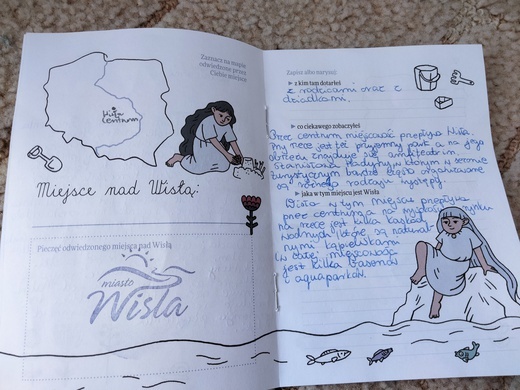 Zaznacz na mapie
odwiedzone przez
Ciebie miejsce
Wisła
centrum
Miejsce nad Wisłą:
Pieczęć odwiedzonego miejsca nad Wisłą
miasto
Wisła
Zapisz albo narysuj:
z kim tam dotarłeś
z rodzicami oraz z
dziadkami.
co ciekawego zobaczyłeś
Przez centrum miejscowość przepływa Wisła.
Przy rzece jest też przyjemny park a na jego
obrzeżu znajduje się amfiteatr im.
Stanisława Hadyny w którym w sezonie
turystycznym bardzo często organizowane
są różnego rodzaju występy.
jaka w tym miejscu jest Wisła
Wisła w tym miejscu przepływa
przez centrum, a na
na rzece jest kilka kaskad
wodnych, które są natural-
nymi kąpieliskami
W całej miejscowości
jest kilka basenów
i aquaparków.